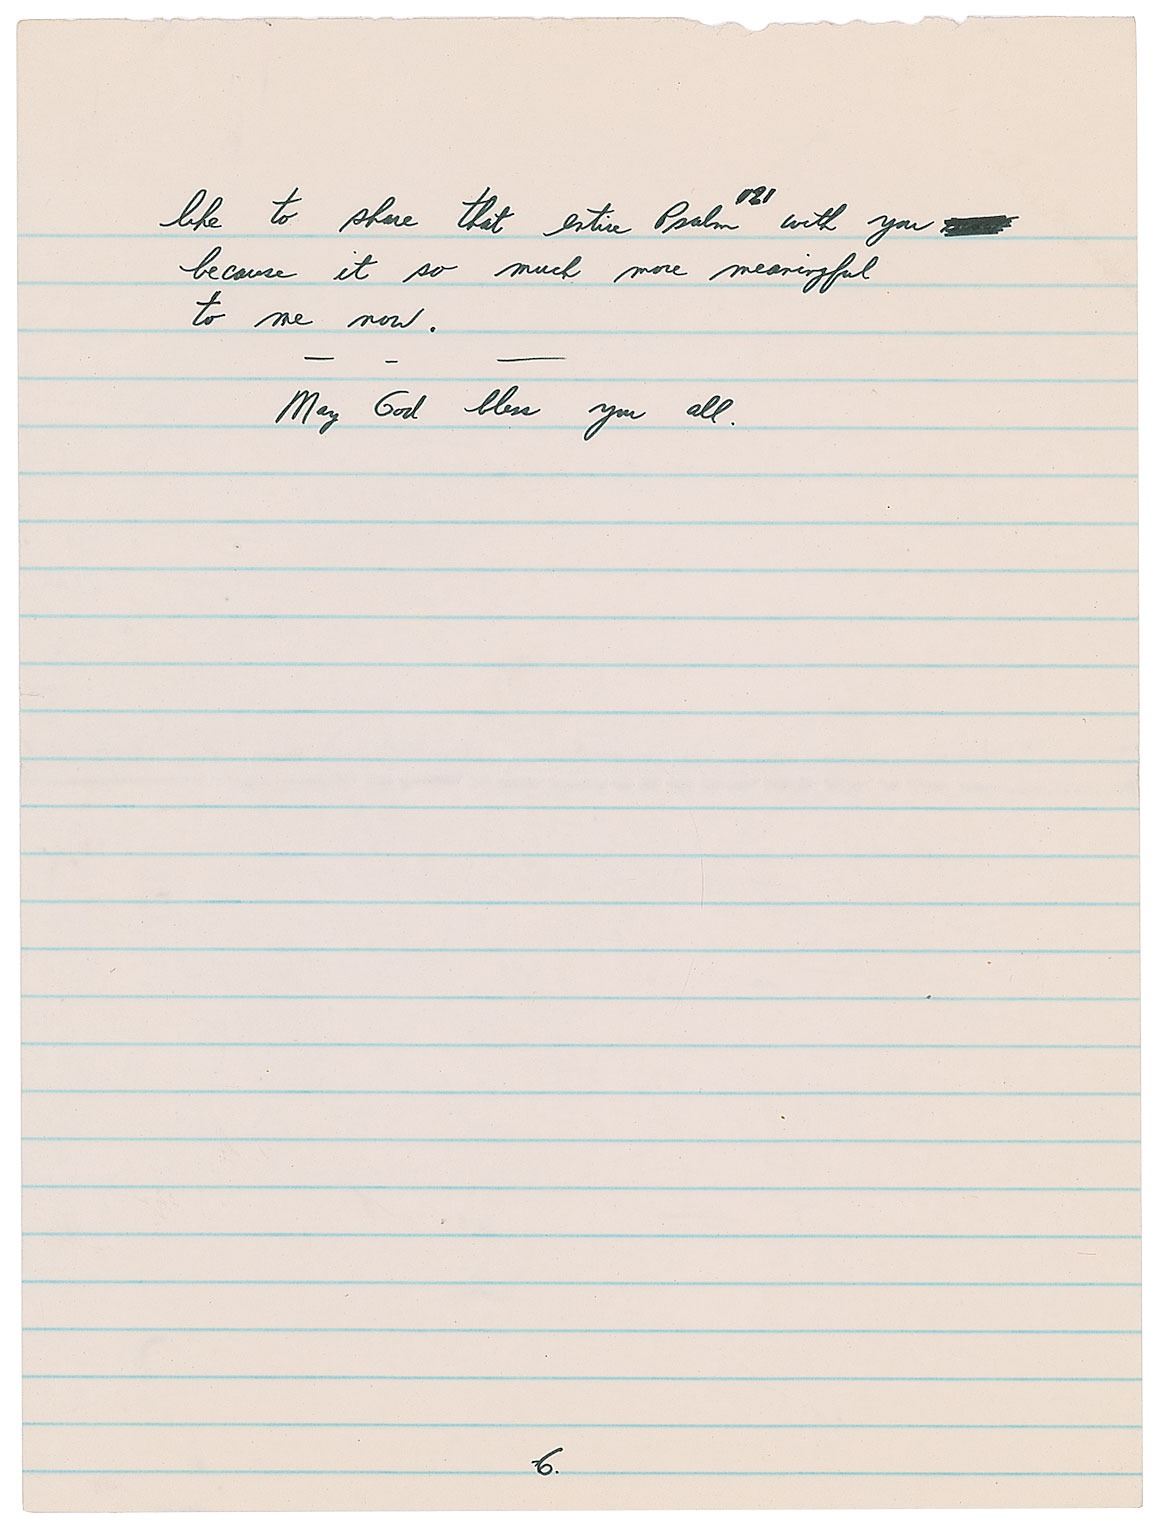 like to share that entire Psalm 121 with you
because it so much more meaningful
to me now.
— - —
May God bless you all.
6.